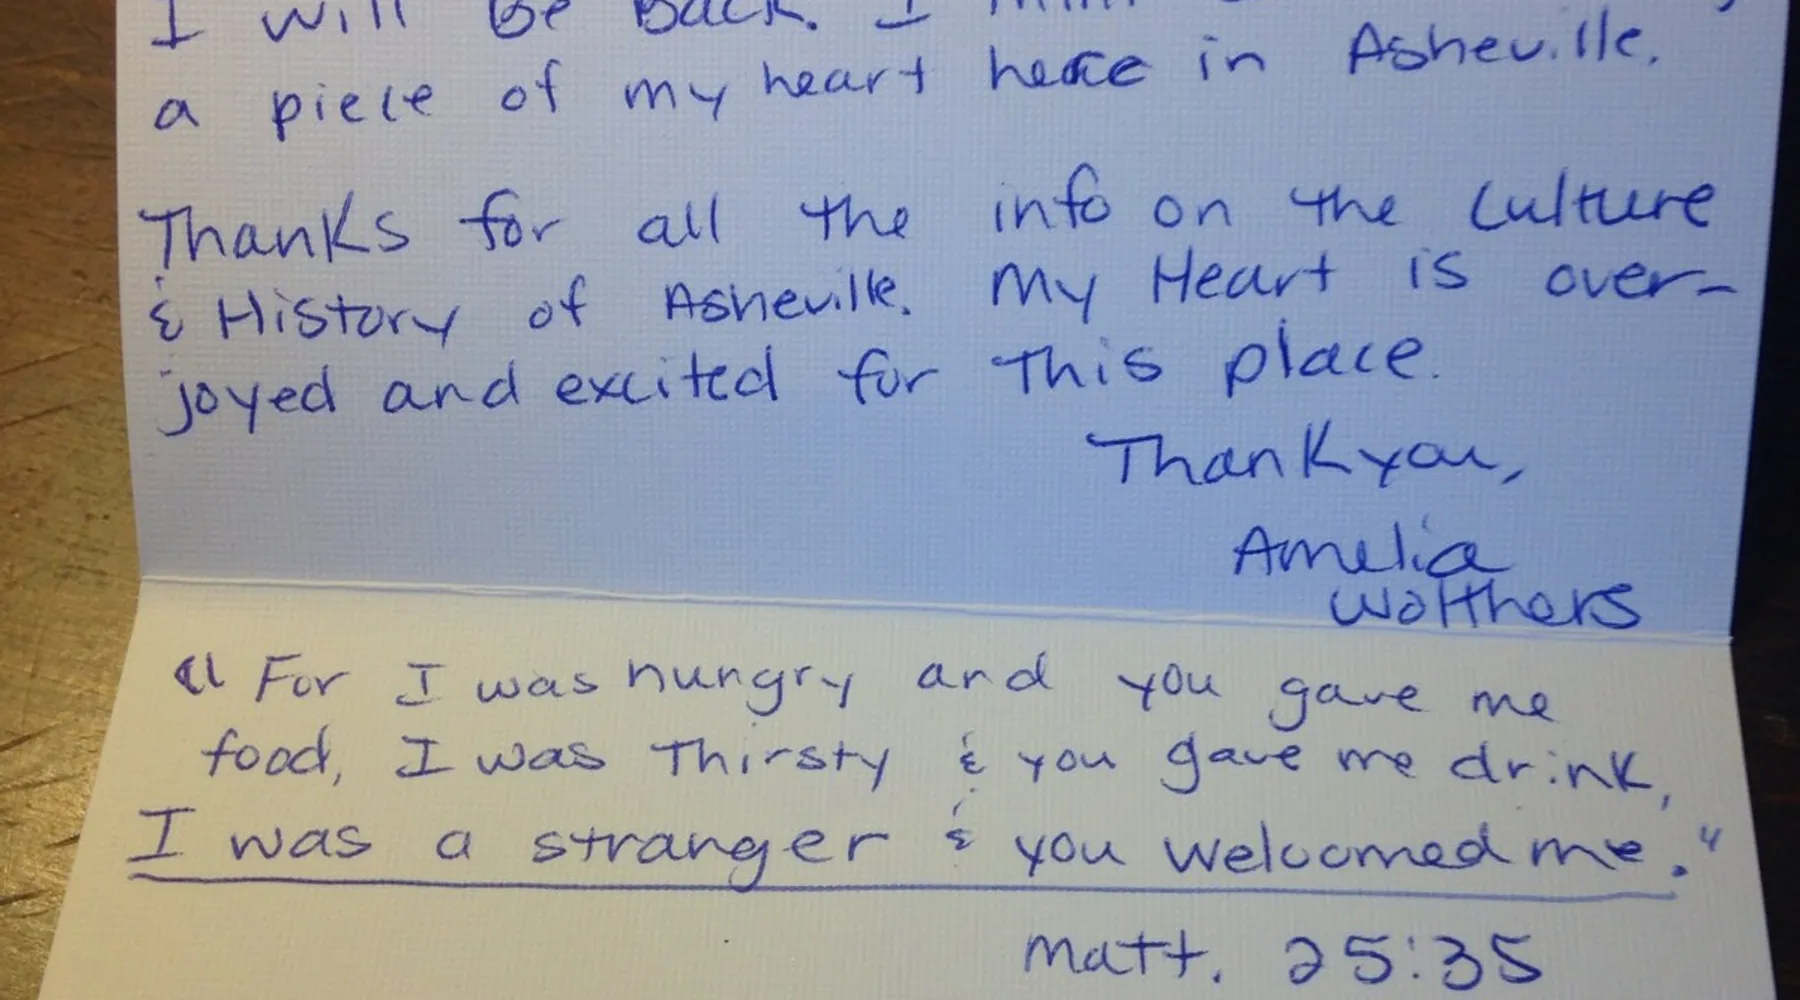 I will be back. I
a piece of my heart here in Asheville.
Thanks for all the info on the culture
& History of Asheville. My Heart is over-
joyed and excited for This place.
Thank you,
Amelia
Wolthers
"For I was hungry and you gave me
food, I was Thirsty & you gave me drink,
I was a stranger & you welcomed me."
Matt. 25:35